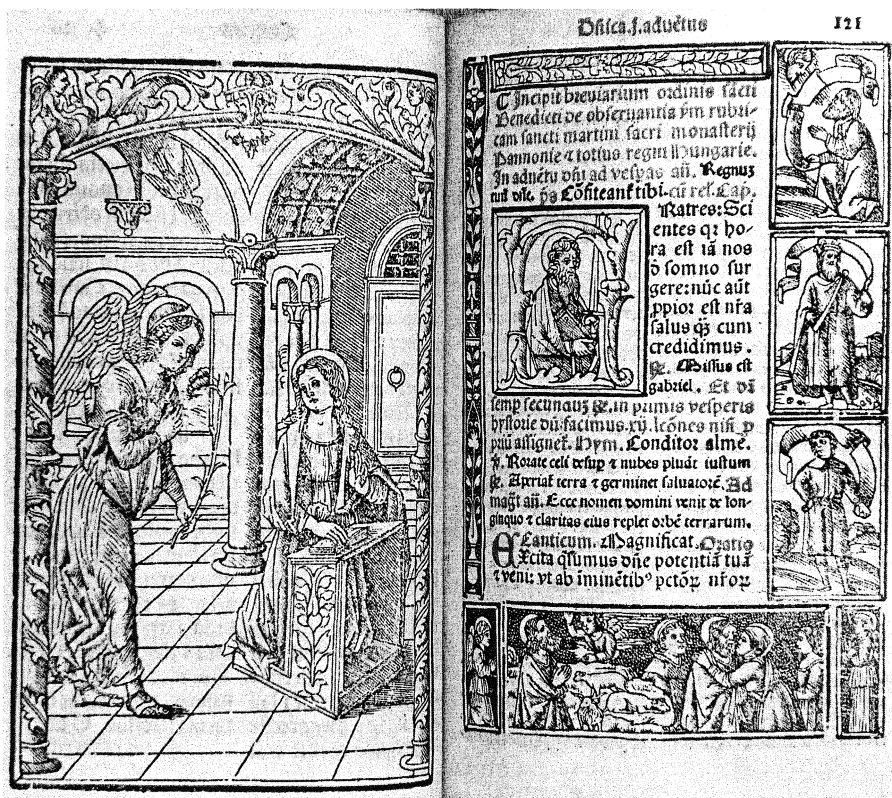 Dñica.j.aduẽtus 121
¶ Incipit breuiarium ordinis sãcti
Benedicti de obseruantia ꝑm rubri-
cam sancti martini sacri monasterij
Pannonie ⁊ totius regni Hungarie.
In aduẽtu dñi ad vesꝑas añ. Regnuʒ
ps̃ Cõfiteanł tibi. cũ rel̃. Cap.
FRatres: Sci
entes qꝛ ho-
ra est iã nos
õ somno sur
gere: nũc aũt
ꝓpior est nr̃a
salus qȝ̃ cum
credidimus.
Missus est
gabriel. Et
in primis vesperis
hystorie
Hym. Conditor alme.
Rorate celi desuꝑ ⁊ nubes pluãt iustum
Aperiať terra ⁊ germinet saluatorẽ. Ad
mag̃t añ. Ecce nomen domini venit de lon-
ginquo ⁊ claritas eius replet orbẽ terrarum.
Canticum. Magnificat. Oratio
EXcita qs̃umus dñe potentiã tuã
⁊ veni: vt ab iminẽtibꝰ pctõꝝ nr̃oꝝ